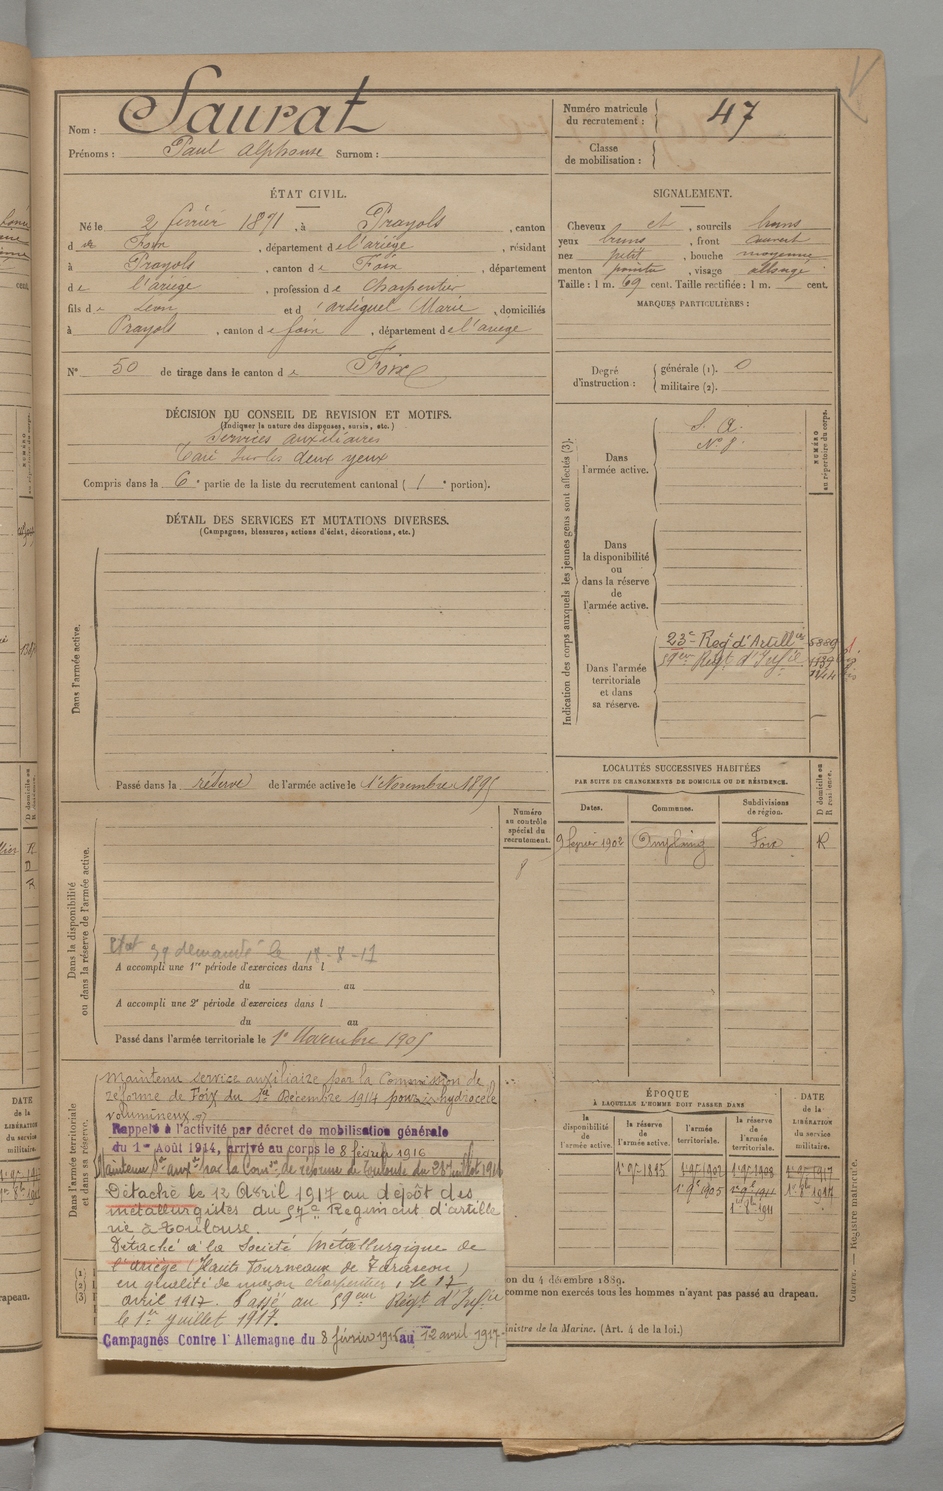 Nom : Saurat
Prénoms : Paul Alphonse Surnom :
Numéro matricule du recrutement : 47
Classe de mobilisation :
ÉTAT CIVIL.
Né le 2 février 1871, à Prayols, canton
d de Foix, département de l'ariège, résidant
à Prayols, canton de Foix, département
de l'ariège, profession de charpentier
fils de Léon et d'arséguel Marie, domiciliés
à Prayols, canton de foix, département de l'ariège
N° 50 de tirage dans le canton de Foix
SIGNALEMENT.
Cheveux et, sourcils bruns
yeux bruns, front couvert
nez petit, bouche moyenne
menton pointu, visage allongé
Taille : 1 m. 69 cent. Taille rectifiée : 1 m. cent.
MARQUES PARTICULIÈRES :
Degré d'instruction : générale (1). 0
militaire (2).
DÉCISION DU CONSEIL DE REVISION ET MOTIFS.
(Indiquer la nature des dispenses, sursis, etc.)
Services auxiliaires
Taie sur les deux yeux
Compris dans la 6e partie de la liste du recrutement cantonal (1e portion).
DÉTAIL DES SERVICES ET MUTATIONS DIVERSES.
(Campagnes, blessures, actions d'éclat, décorations, etc.)
Dans l'armée active.
Passé dans la réserve de l'armée active le 1er Novembre 1895
Indication des corps auxquels les jeunes gens sont affectés (3).
NUMÉRO au répertoire du corps.
Dans l'armée active.
S. A.
N° 8
Dans la disponibilité ou dans la réserve de l'armée active.
Dans l'armée territoriale et dans sa réserve.
23e Regt d'Artillie
59em Régt d'Infie
Numéro au contrôle spécial du recrutement.
8
Dans la disponibilité ou dans la réserve de l'armée active.
Etat 39 demandé le 18-8-17
A accompli une 1re période d'exercices dans l
du au
A accompli une 2e période d'exercices dans l
du au
Passé dans l'armée territoriale le 1er Novembre 1905
LOCALITÉS SUCCESSIVES HABITÉES
PAR SUITE DE CHANGEMENTS DE DOMICILE OU DE RÉSIDENCE.
Dates. Communes. Subdivisions de région. D domicile ou R résidence.
9 février 1902 Foix R
ÉPOQUE
À LAQUELLE L'HOMME DOIT PASSER DANS
la disponibilité de l'armée active. la réserve de l'armée active. l'armée territoriale. la réserve de l'armée territoriale. DATE de la LIBÉRATION du service militaire.
Dans l'armée territoriale et dans sa réserve.
Maintenu service auxiliaire par la Commission de
réforme de Foix du 1er Décembre 1914 pour hydrocèle
volumineux.
Rappelé à l'activité par décret de mobilisation générale
du 1er Août 1914, arrivé au corps le 8 février 1916
Maintenu Sce auxre par la Comon de réforme de Toulouse du 28 Juillet 1916
Détaché le 12 Avril 1917 au dépôt des
métallurgistes du 57e Régiment d'artille
rie à Toulouse.
Détaché à la Société Métallurgique de
l'ariège (Hauts Fourneaux de Tarascon)
en qualité de maçon charpentier, le 12
avril 1917. Passé au 59em Régt d'Infie
le 1er juillet 1917.
Campagnes Contre l'Allemagne du 8 février 1916 au 12 avril 1917
on du 4 décembre 1889.
comme non exercés tous les hommes n'ayant pas passé au drapeau.
inistre de la Marine. (Art. 4 de la loi.)
Guerre. — Registre matricule.